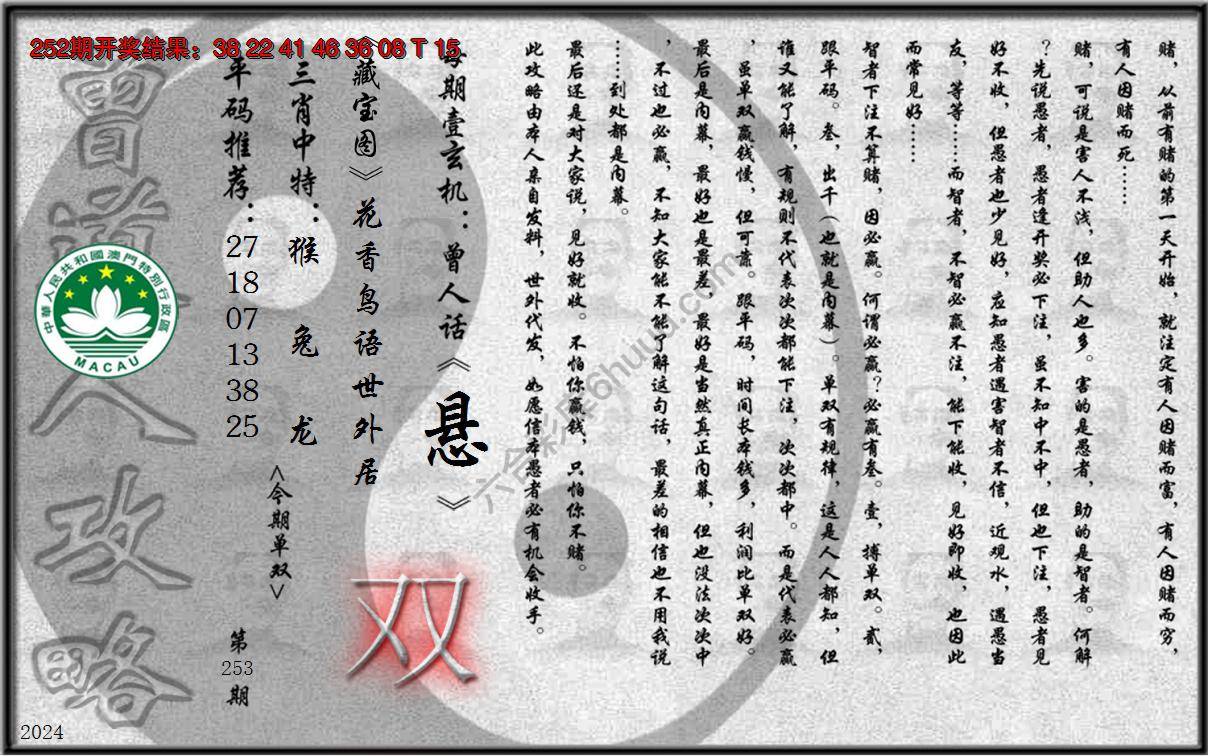 252期开奖结果：38 22 41 46 36 08 T 15
赌，从前有赌的第一天开始，就注定有人因赌而富，有人因赌而穷，
有人因赌而死……
赌，可说是害人不浅，但助人也多。害的是愚者，助的是智者。何解
？先说愚者，愚者逢开奖必下注，虽不知中不中，但也下注，愚者见
好不收，但愚者也少见好，应知愚者遇害智者不信，近观水，遇愚当
友，等等……而智者，不智必赢不注，能下能收，见好即收，也因此
而常见好……
智者下注不算赌，因必赢。何谓必赢？必赢有叁。壹，搏单双。贰，
跟平码。叁，出千（也就是内幕）。单双有规律，这是人人都知，但
谁又能了解，有规则不代表次次都能下注，次次都中。而是代表必赢
，虽单双赢钱慢，但可靠。跟平码，时间长本钱多，利润比单双好。
最后是内幕，最好也是最差，最好是当然真正内幕，但也没法次次中
，不过也必赢，不知大家能不能了解这句话，最差的相信也不用我说
……到处都是内幕。
最后还是对大家说，见好就收。不怕你赢钱，只怕你不赌。
此攻略由本人亲自发料，世外代发，如愿信本愚者必有机会收手。
每期壹玄机：曾人话《悬》
《藏宝图》花香鸟语世外居
双
三肖中特：猴 兔 龙
<今期单双>
平码推荐：27 18 07 13 38 25
第253期
曾道人攻略
中華人民共和國澳門特別行政區
MACAU
六合彩库6huuu.com
2024